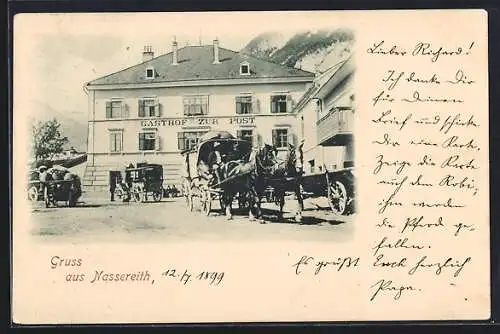 GASTHOF ZUR POST
Lieber Richard!
Ich danke Dir
für Deinen
Brief und schicke
Dir eine Karte.
Zeige die Karte
auch dem Robi,
ihm werden
die Pferd ge-
fallen.
Gruss
aus Nassereith, 12./7. 1899
Es grüßt
Euch herzlich
Papa.